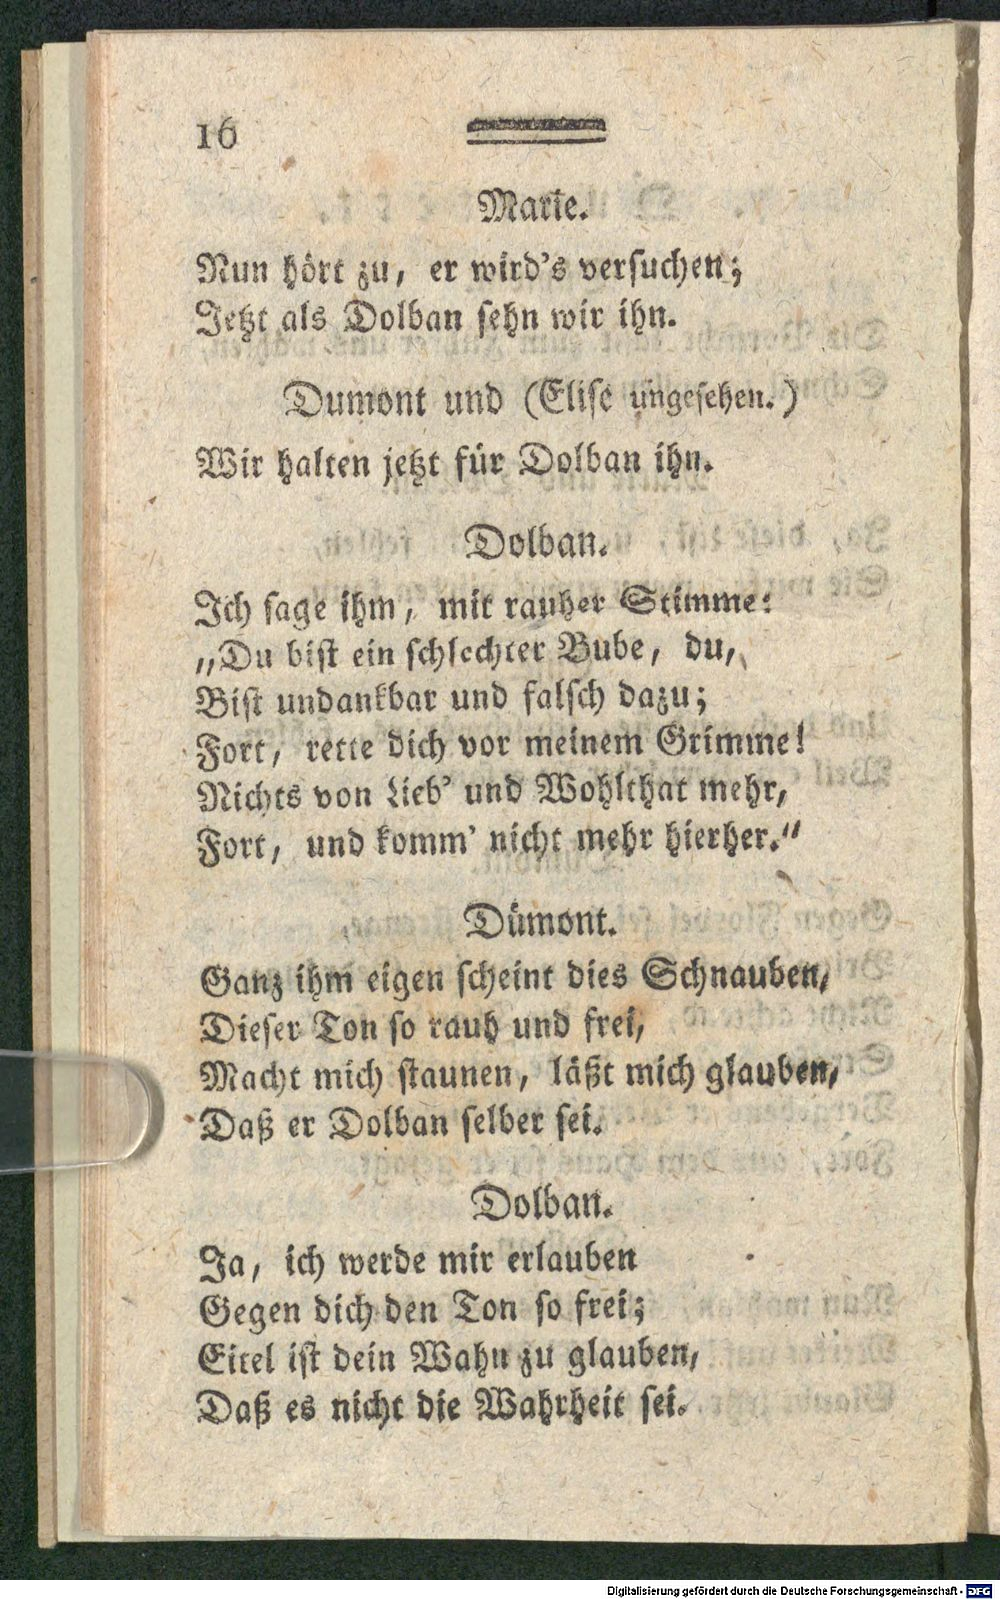 16
Marie.
Nun hört zu, er wird's versuchen;
Jetzt als Dolban sehn wir ihn.
Dumont und (Elise ungesehen.)
Wir halten jetzt für Dolban ihn.
Dolban.
Ich sage ihm, mit rauher Stimme:
„Du bist ein schlechter Bube, du,
Bist undankbar und falsch dazu;
Fort, rette dich vor meinem Grimme!
Nichts von Lieb' und Wohlthat mehr,
Fort, und komm' nicht mehr hierher.“
Dümont.
Ganz ihm eigen scheint dies Schnauben,
Dieser Ton so rauh und frei,
Macht mich staunen, läßt mich glauben,
Daß er Dolban selber sei.
Dolban.
Ja, ich werde mir erlauben
Gegen dich den Ton so frei;
Eitel ist dein Wahn zu glauben,
Daß es nicht die Wahrheit sei.
Digitalisierung gefördert durch die Deutsche Forschungsgemeinschaft - DFG